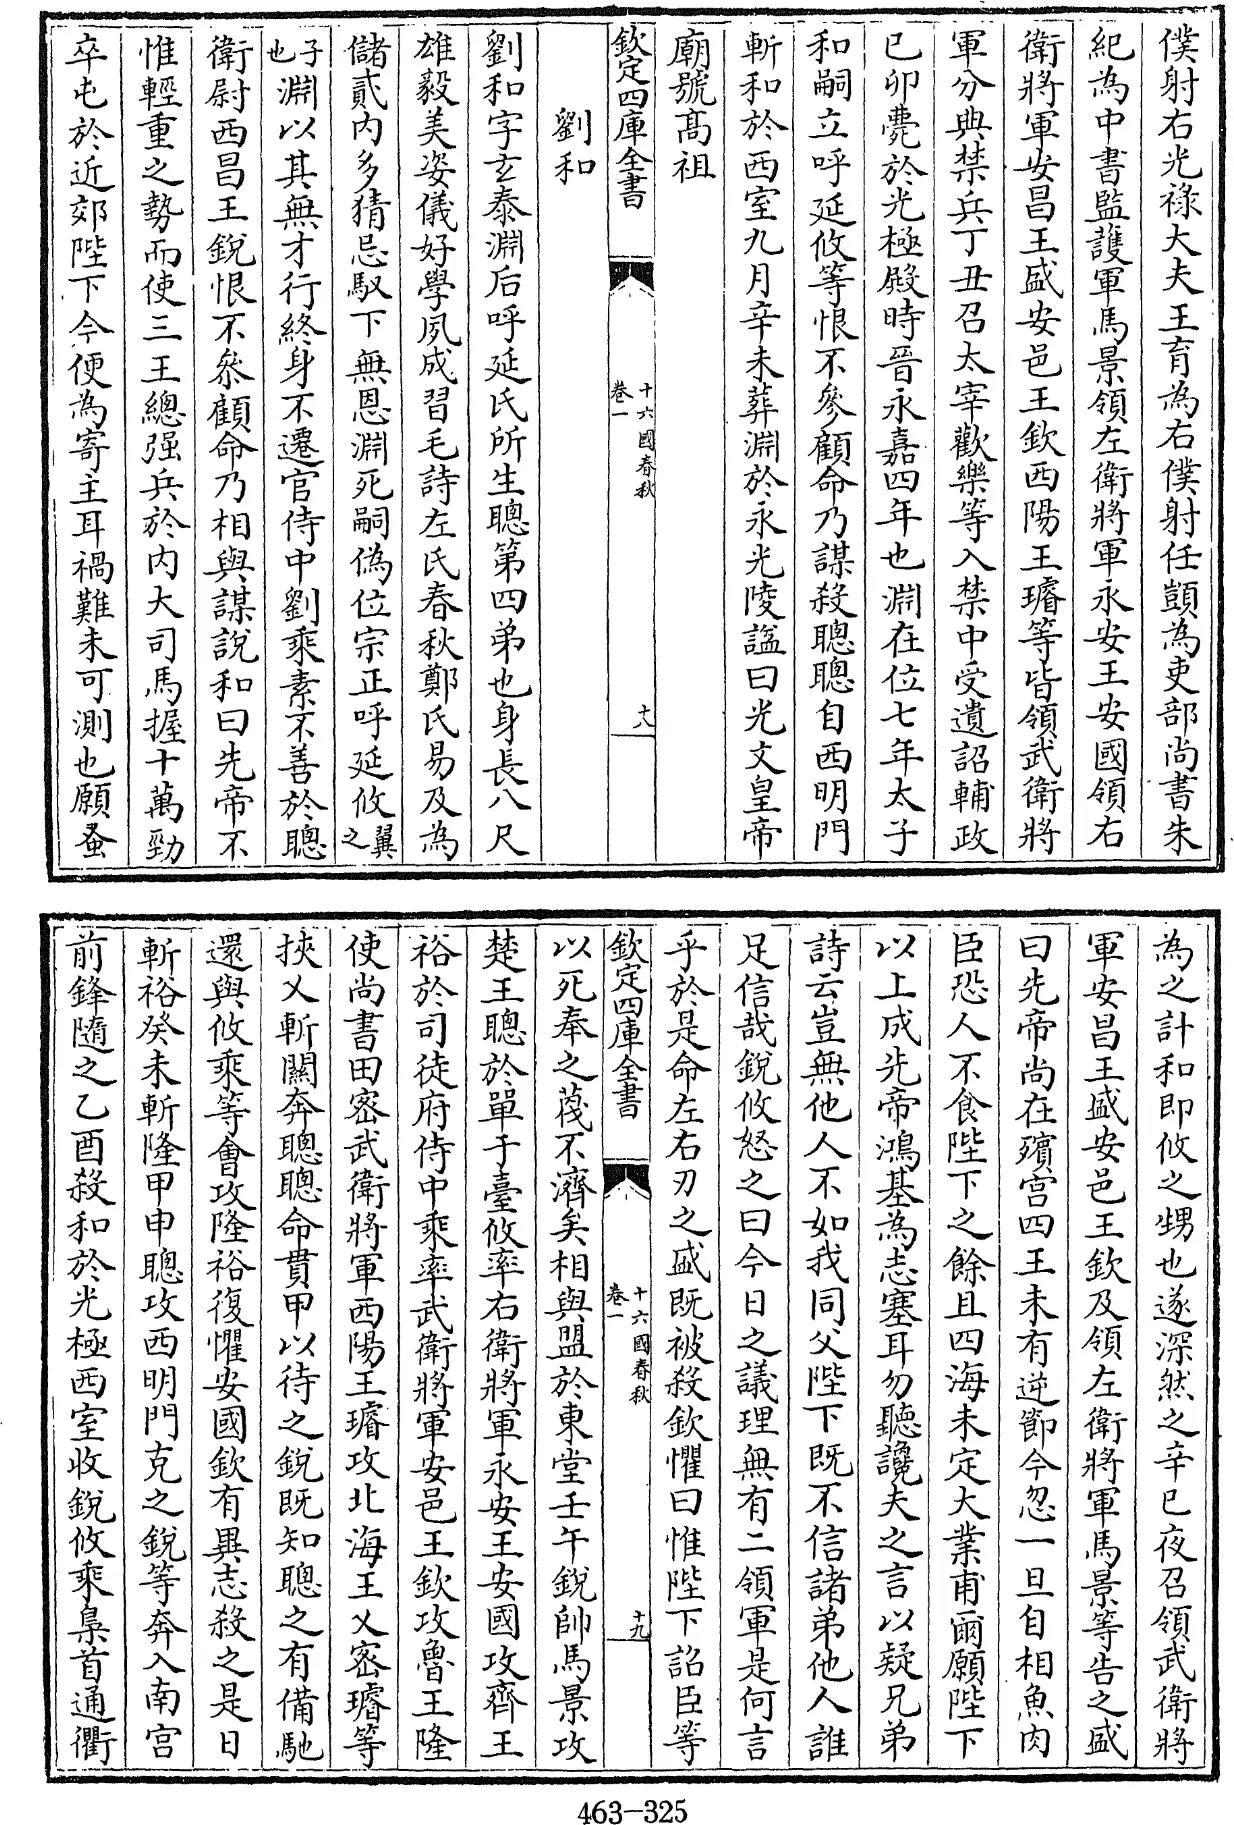 僕射右光祿大夫王育為右僕射任顗為吏部尚書朱
紀為中書監護軍馬景領左衛將軍永安王安國領右
衛將軍安昌王盛安邑王欽西陽王璿等皆領武衛將
軍分典禁兵丁丑召太宰歡樂等入禁中受遺詔輔政
已卯薨於光極殿時晉永嘉四年也淵在位七年太子
和嗣立呼延攸等恨不參顧命乃謀殺聰聰自西明門
斬和於西室九月辛未葬淵於永光陵諡曰光文皇帝
廟號髙祖
欽定四庫全書
十六國春秋
卷一
十八
劉和
劉和字玄泰淵后呼延氏所生聰第四弟也身長八尺
雄毅美姿儀好學夙成習毛詩左氏春秋鄭氏易及為
儲貳内多猜忌馭下無恩淵死嗣偽位宗正呼延攸翼之
子也淵以其無才行終身不遷官侍中劉乘素不善於聰
衛尉西昌王銳恨不叅顧命乃相與謀說和曰先帝不
惟輕重之勢而使三王總强兵於内大司馬握十萬勁
卒屯於近郊陛下今便為寄主耳禍難未可測也願蚤
為之計和即攸之甥也遂深然之辛巳夜召領武衛將
軍安昌王盛安邑王欽及領左衛將軍馬景等告之盛
曰先帝尚在殯宫四王未有逆節今忽一旦自相魚肉
臣恐人不食陛下之餘且四海未定大業甫爾願陛下
以上成先帝鴻基為志塞耳勿聽讒夫之言以疑兄弟
詩云豈無他人不如我同父陛下既不信諸弟他人誰
足信哉銳攸怒之曰今日之議理無有二領軍是何言
乎於是命左右刃之盛既被殺欽懼曰惟陛下詔臣等
欽定四庫全書
十六國春秋
卷一
十九
以死奉之蔑不濟矣相與盟於東堂壬午銳帥馬景攻
楚王聰於單于臺攸率右衛將軍永安王安國攻齊王
裕於司徒府侍中乘率武衛將軍安邑王欽攻魯王隆
使尚書田密武衛將軍西陽王璿攻北海王乂密璿等
挾乂斬關奔聰聰命貫甲以待之銳既知聰之有備馳
還與攸乘等會攻隆裕復懼安國欽有異志殺之是日
斬裕癸未斬隆甲申聰攻西明門克之銳等奔入南宫
前鋒隨之乙酉殺和於光極西室收銳攸乘梟首通衢
463-325